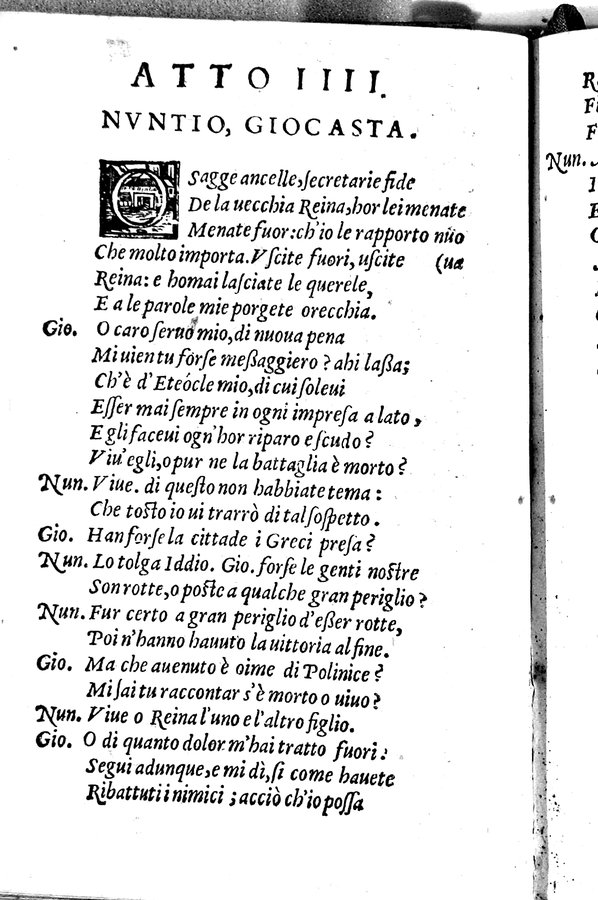 ATTO IIII.
NVNTIO, GIOCASTA.
O Sagge ancelle, secretarie fide
De la uecchia Reina, hor lei menate
Menate fuor: ch'io le rapporto nuo
Che molto importa. Vscite fuori, uscite (ua
Reina: e homai lasciate le querele,
E a le parole mie porgete orecchia.
Gio. O caro seruo mio, di nuoua pena
Mi uien tu forse messaggiero? ahi lassa;
Ch'è d'Eteócle mio, di cui soleui
Esser mai sempre in ogni impresa a lato,
E gli faceui ogn'hor riparo e scudo?
Viu' egli, o pur ne la battaglia è morto?
Nun. Viue. di questo non habbiate tema:
Che tosto io ui trarrò di tal sospetto.
Gio. Han forse la cittade i Greci presa?
Nun. Lo tolga Iddio. Gio. forse le genti nostre
Son rotte, o poste a qualche gran periglio?
Nun. Fur certo a gran periglio d'esser rotte,
Poi n'hanno hauuto la uittoria al fine.
Gio. Ma che auenuto è oime di Polinice?
Mi sai tu raccontar s'è morto o uiuo?
Nun. Viue o Reina l'uno e l'altro figlio.
Gio. O di quanto dolor m'hai tratto fuori:
Segui adunque, e mi dì, si come hauete
Ribattuti i nimici; acciò ch'io possa
Nun.